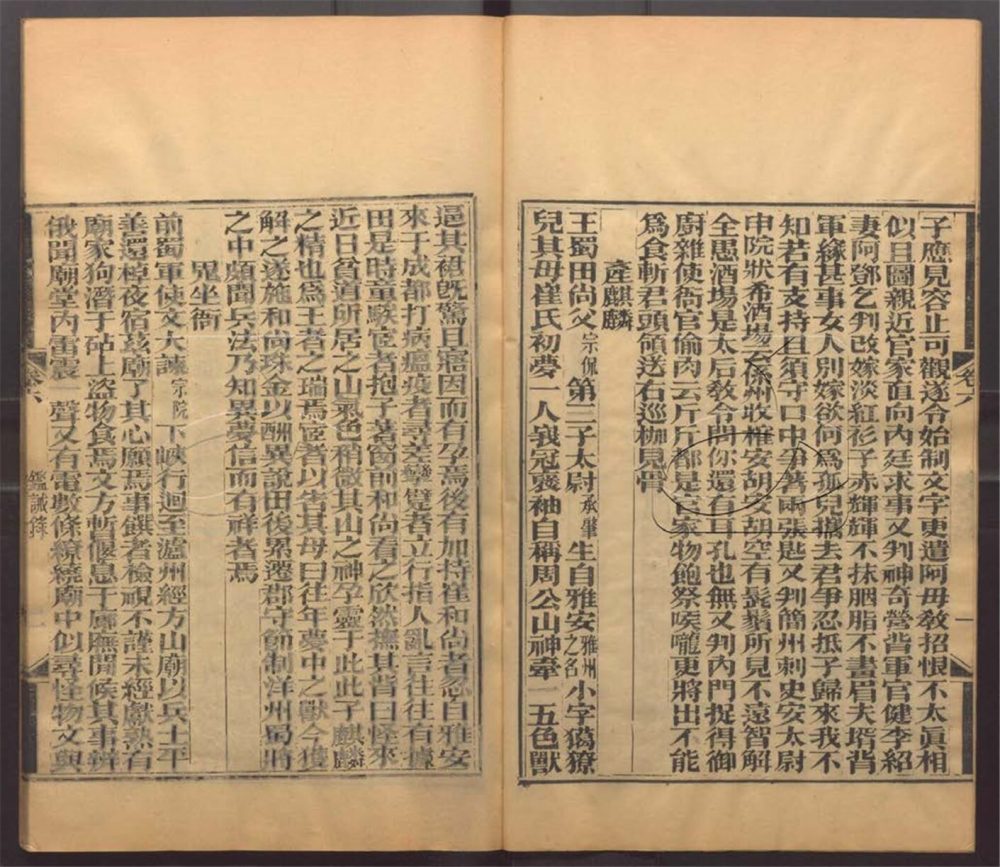 子應見容止可觀遂令始制文字更遣阿母教招恨不太眞相
似且圖親近官家直向內廷求事又判神奇營背軍官健李紹
妻阿鄧乞判改嫁淡紅衫子赤輝輝不抹胭脂不畫眉夫壻背
軍緣甚事女人別嫁欲何爲孤兒攜去君爭忍抵子歸來我不
知若有支持且須守口中爭著兩張匙又判簡州刺史安太尉
申院狀希酒場云係州收榷安胡安胡空有髭鬚所見不遠智解
全思酒場是太后教令問你還有耳孔也無又判內門捉得御
廚雜使衙官偷肉云斤斤都是官家物飽祭喉嚨更將出不能
爲食斬君頭領送右巡枷見骨
產麒麟
王蜀田尚父宗侃第三子太尉承肇生自雅安雅州之名小字獦獠
兒其母崔氏初夢一人袞冠褒袖自稱周公山神牽一五色獸
卷六
一
逼其裙旣驚且寤因而有孕焉後有加持崔和尚者忽自雅安
來于成都打病瘟疫者尋差攣躄者立行指人亂言往往有據
田是時童騃宦者抱子著笏前和尚看之欣然撫其背曰怪來
近日貧道所居之山氣色稍微其山之神孕靈于此此子麒麟
之精也爲王者之瑞焉宦者以告其母曰往年夢中之獸今獲
解之遂施和尚珠金以酬異說田後累遷郡守節制洋州蜀將
之中頗聞兵法乃知異夢信而有祥者焉
舁坐衙
前蜀軍使文大諫宗院下峽行迴至瀘州經方山廟以兵士平
善還棹夜宿茲廟了其心願焉事饌者檢視不謹未經獻熟有
廟家狗潛于砧上盜物食焉文方暫偃息于廊廡閒候其事辨
俄聞廟堂內雷震一聲又有電數條繚繞廟中似尋怪物文與
卷六
鑑誡錄